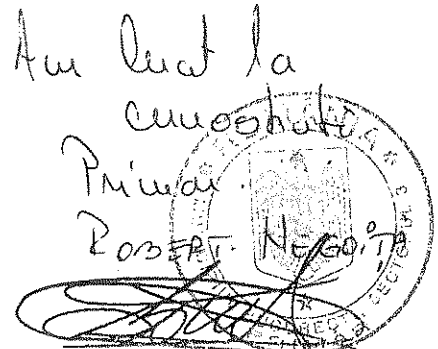 Am luat la
cunoștință
Primar
ROBERT NEGOIȚĂ
SECTORUL 3